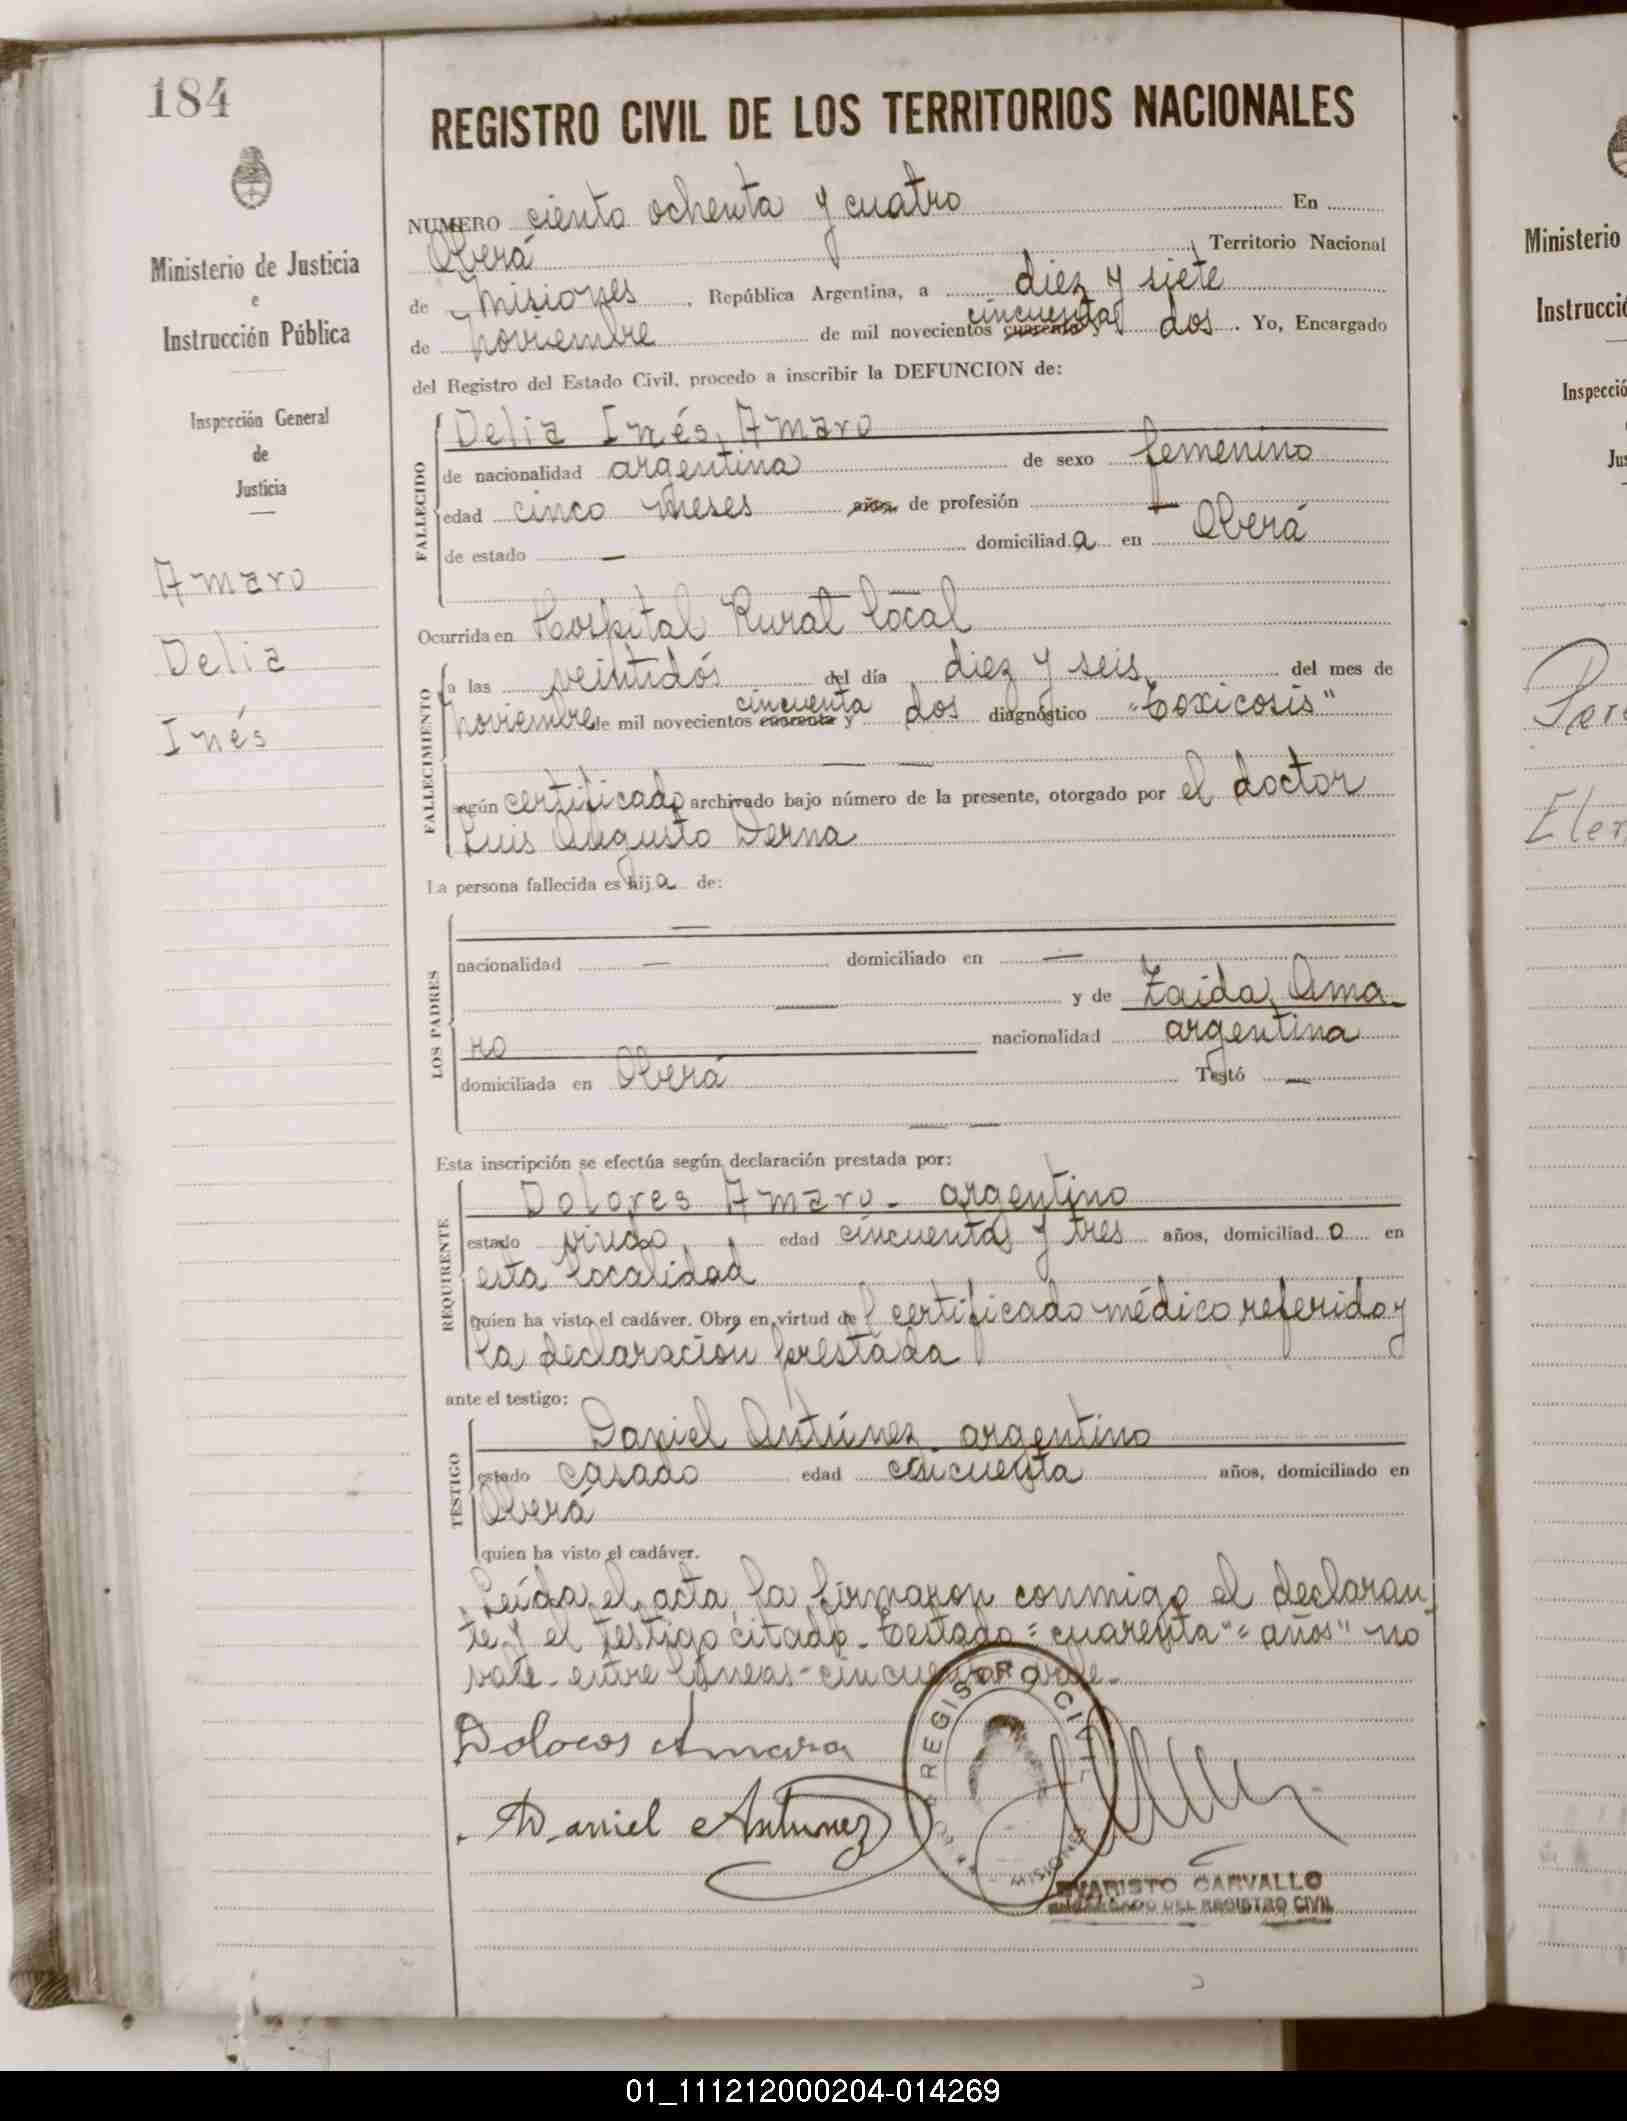 184
REGISTRO CIVIL DE LOS TERRITORIOS NACIONALES
Ministerio de Justicia
e
Instrucción Pública
Inspección General
de
Justicia
Amaro
Delia
Inés
NUMERO ciento ochenta y cuatro En
Oberá , Territorio Nacional
de Misiones , República Argentina, a diez y siete
de Noviembre de mil novecientos cuarenta y cincuenta dos . Yo, Encargado
del Registro del Estado Civil, procedo a inscribir la DEFUNCION de:
FALLECIDO
Delia Inés, Amaro
de nacionalidad argentina de sexo femenino
edad cinco meses años, de profesión —
de estado — domiciliad a en Oberá
Ocurrida en Hospital Rural local
FALLECIMIENTO
a las veintidós del día diez y seis del mes de
Noviembre de mil novecientos cuarenta y cincuenta dos diagnóstico "Toxicosis"
— —
según certificado archivado bajo número de la presente, otorgado por el doctor
Luis Augusto Derna
La persona fallecida es hij a de:
LOS PADRES
—
nacionalidad — domiciliado en —
— y de Zaida, Ama-
ro nacionalidad argentina
domiciliada en Oberá Testó —
— —
Esta inscripción se efectúa según declaración prestada por:
REQUIRENTE
Dolores Amaro - argentino
estado viudo, edad cincuenta y tres años, domiciliad o en
esta localidad
quien ha visto el cadáver. Obra en virtud del certificado médico referido y
la declaración prestada
ante el testigo:
TESTIGO
Daniel Antúnez - argentino
estado casado edad cincuenta años, domiciliado en
Oberá
quien ha visto el cadáver.
Leída el acta, la firmaron conmigo el declaran-
te y el testigo citado - Testado = cuarenta" = años" no
vale - entre líneas - cincuenta vale -
Dolores Amaro
Daniel Antunez
REGISTRO CIVIL
MISIONES
EVARISTO CARVALLO
ENCARGADO DEL REGISTRO CIVIL
Ministerio
Instrucció
Inspecció
Jus
Elen
01_111212000204-014269